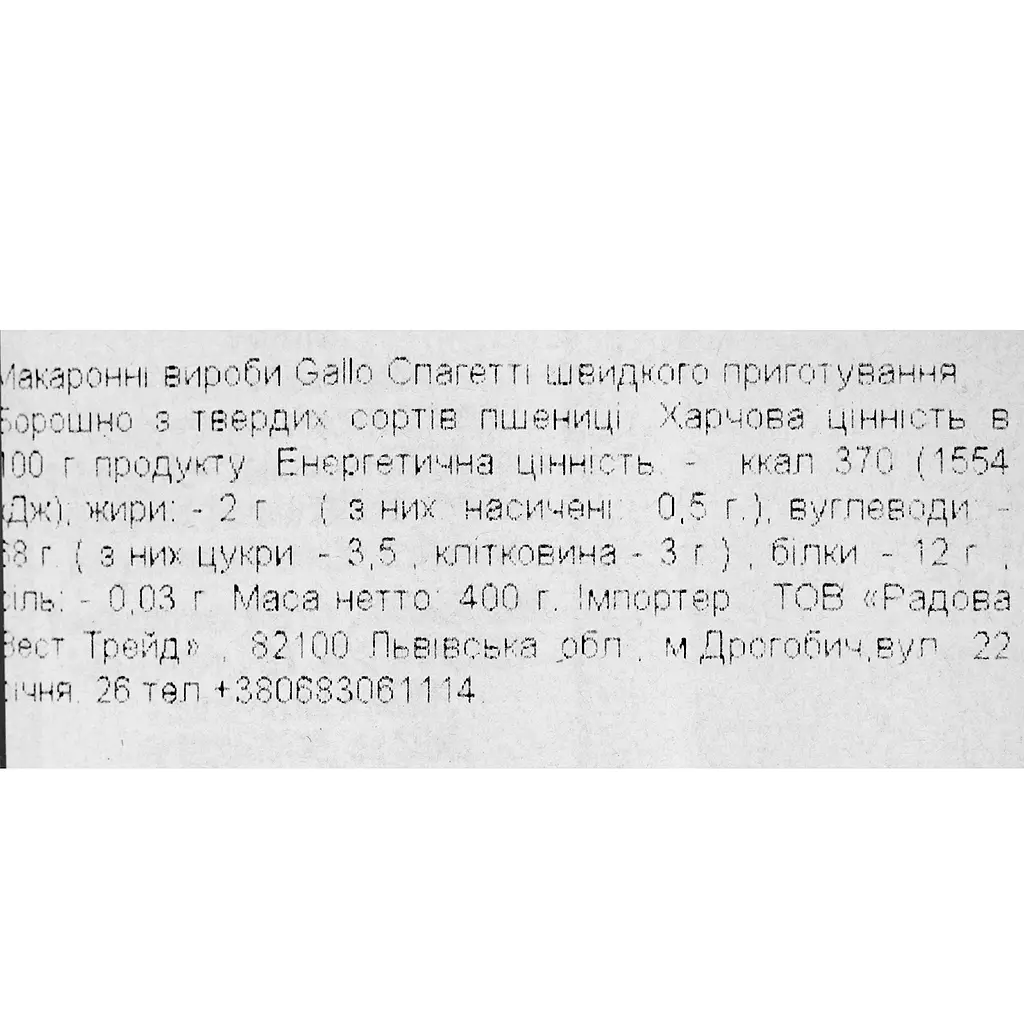 Макаронні вироби Gallo Спагетті швидкого приготування.
Борошно з твердих сортів пшениці. Харчова цінність в
100 г продукту. Енергетична цінність: - ккал 370 (1554
кДж); жири: - 2 г. ( з них насичені: 0,5 г.), вуглеводи: -
68 г. ( з них цукри - 3,5 , клітковина - 3 г.) , білки - 12 г. ,
сіль: - 0,03 г. Маса нетто: 400 г. Імпортер: ТОВ «Радова
Вест Трейд» , 82100 Львівська обл., м.Дрогобич,вул. 22
січня, 26 тел.+380683061114.